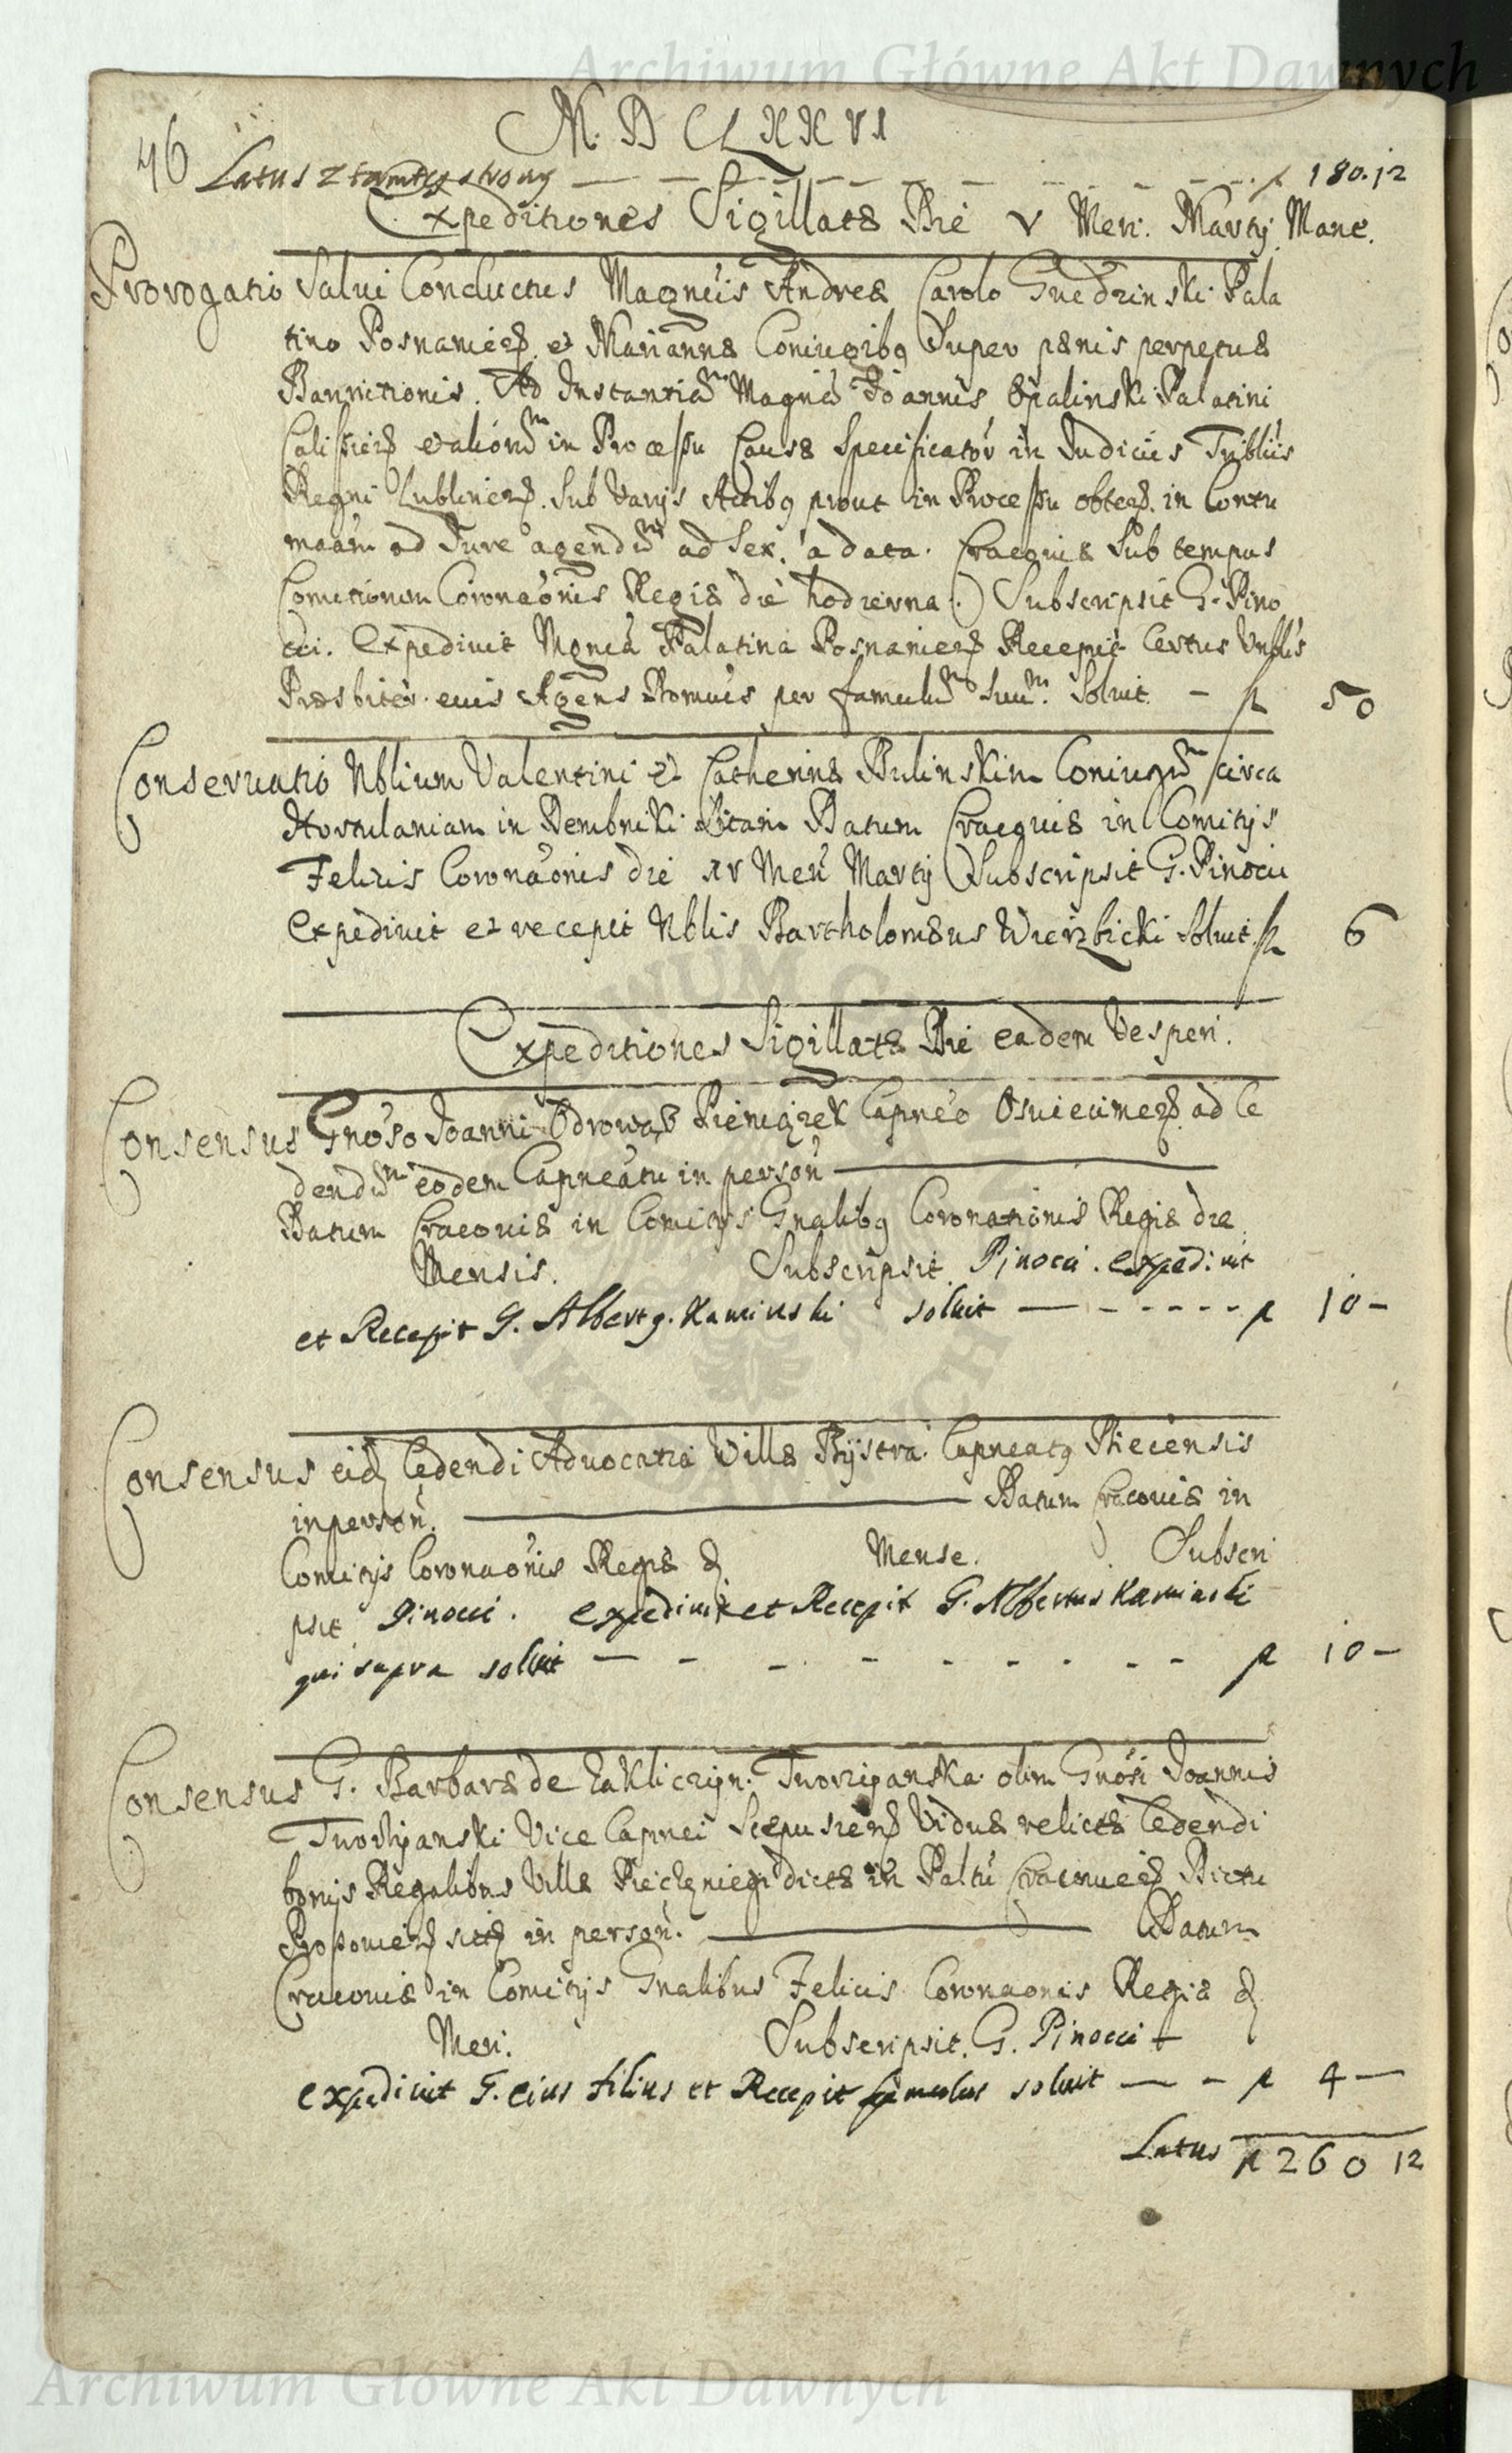 Archiwum Główne Akt Dawnych
M. D C L X X V I
46 Latus z tamtey strony — — — — — — — — — — p 180.12
Expeditiones Sigillatæ Die V Men: Martij Mane.
Prorogatio Salui Conductus Magncis Andreæ Carolo Grudzinski Pala
tino Posnanien. et Mariannæ Coniugibq Super pænis perpetuæ
Bannitionis. Ad Instantiam Magnci Joannis Opalinski Palatini
Calissien et aliorum in Processu Causæ Specificator in Judicijs Triblijs
Regni Lublinen. Sub Varijs Actibq prout in Processu obten. in Contu
maciam ad Jure agendum ad Sex. a data. Cracouiæ Sub tempus
Comitiorum Coronaonis Regiæ die hodierna.) Subscripsit G. Pino
cci. Expediuit Mgnca Palatina Posnanien Recepit Certus Vnblis
Præsbiter eius Agens per famulum Suum. Soluit. — p 50
Conseruatio Nblium Valentini et Catherinæ Bulinskim Coniugum circa
Hortulaniam in Dembniki Sitam Datum Cracouiæ in Comitijs
Felicis Coronaonis die XV Men Martij (Subscripsit G. Pinocci
Expediuit et recepit Nblis Bartholomæus Wierzbicki Soluit. p 6
Expeditiones Sigillatæ Die eadem Vesperi.
Consensus Gnoso Joanni Odrowąż Pieniązek Capneo Osuiecimen. ad Ce
dendum eodem Capneatu in person ———
Datum Cracouiæ in Comitijs Gnalibq Coronationis Regiæ die
Mensis. Subscripsit Pinocci. Expediuit
et Recepit G. Albertq. Kaminski soluit — - - - - - - p 10 -
Consensus eid Cedendi Aduocatia Villæ Bystra Capneatq Biecensis
in person. ——— Datum Cracouiæ in
Comitijs Coronaonis Regiæ d Mense. Subscri
psit Pinocci. expediuit et Recepit G. Albertus Kaminski
qui supra soluit — - - - - - - - - p 10 —
Consensus G. Barbaræ de Zakliczyn. Tworzyanska olim Gnosi Joannis
Tworzyanski Vice Capnei Scepusien Viduæ relictæ Cedendi
bonis Regalibus Villæ dictæ in Paltu Cracouien Dictu
sitis in person. ——— Datum
Cracouiæ in Comitijs Gnalibus Felicis Coronaonis Regiæ d
Men. Subscripsit. G. Pinocci —
expediuit G. eius filius et Recepit famulus soluit — - p 4 —
Latus p 260 12
Archiwum Główne Akt Dawnych